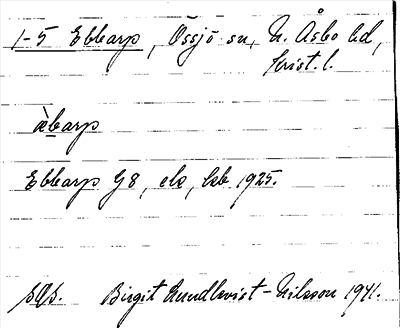 1-5 Ebbarp, Össjö sn, N. Åsbo hd,
Krist. l.
æ̀barp
Ebbarp G8, ek, 1925.
Birgit Lundkvist-Nilsson 1941.